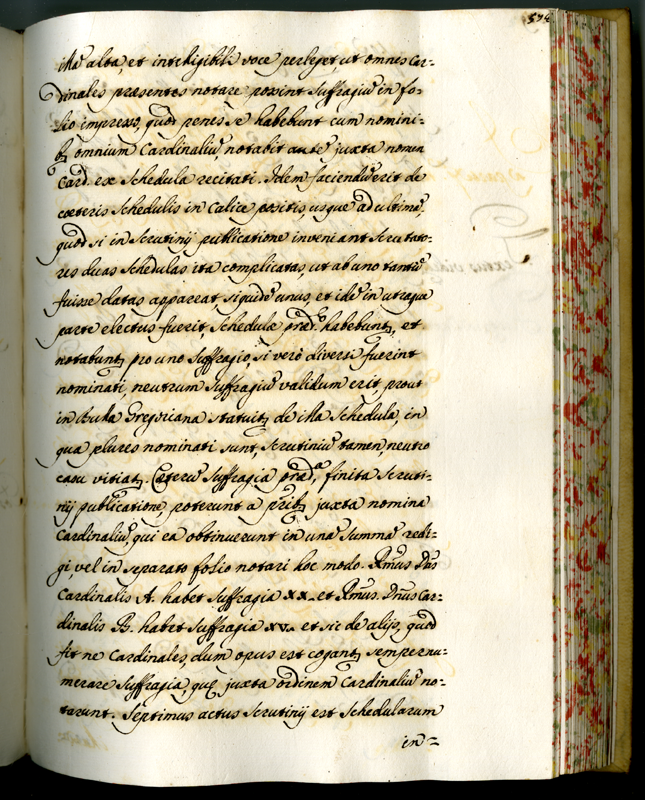 illa alta, et intelligibili voce perleget ut omnes Car=
dinales præsentes notare possint Suffragiũ in fo=
lio impresso, quod penes se habebunt cum nomini=
bʒ omnium Cardinaliũ, notabit ante juxta nomen
Card. ex Schedula recitati. Idem faciendũ erit de
cæteris Schedulis in Calice positis, usque ad ultimã.
quod si in Scrutinij publicatione inveniant Scrutato=
res duas Schedulas ita complicatas, ut ab uno tantũ
fuisse datas appareat siquidẽ unus, et idẽ in utraqa
parte electus fuerit, Schedulæ præd. habebuntʒ, et
notabuntʒ pro uno Suffragio, si verò diversi fuerint
nominati, neutrum Suffragiũ validum erit, prout
in Bulla Gregoriana statuitʒ de illa Schedula, in
qua plures nominati sunt, Scrutiniũ tamen, neutro
casu vitiatʒ. Cæterũ Suffragia præd.ª, finita Scruti=
nij publicatione, poterunt a juxta nomina
Cardinaliũ, qui ea obtinuerunt in unã Summã redi=
gi, vel in separato folio notari hoc modo. Rmus Dñs
Cardinalis A. habet Suffragia XX. et Rmus. Dnus Car=
dinalis B. habet Suffragia XV. et sic de alijs, quod
fit ne Cardinales, dum opus est cogantʒ semper nu=
merare Suffragia, quę juxta ordinem Cardinaliũ no=
tarunt. Septimus actus Scrutinij est Schedularum
in=